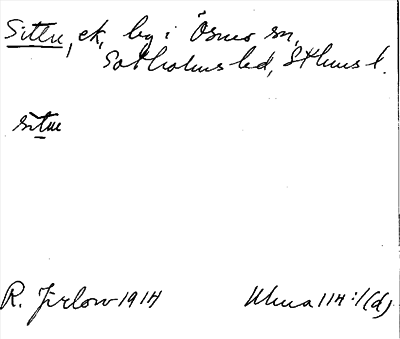 Sittu, ek, by i Ösmo sn,
Sotholms hd, Sthms l.
sitᵤe
R. Jirlow 1914
Ulma 114:1(d)